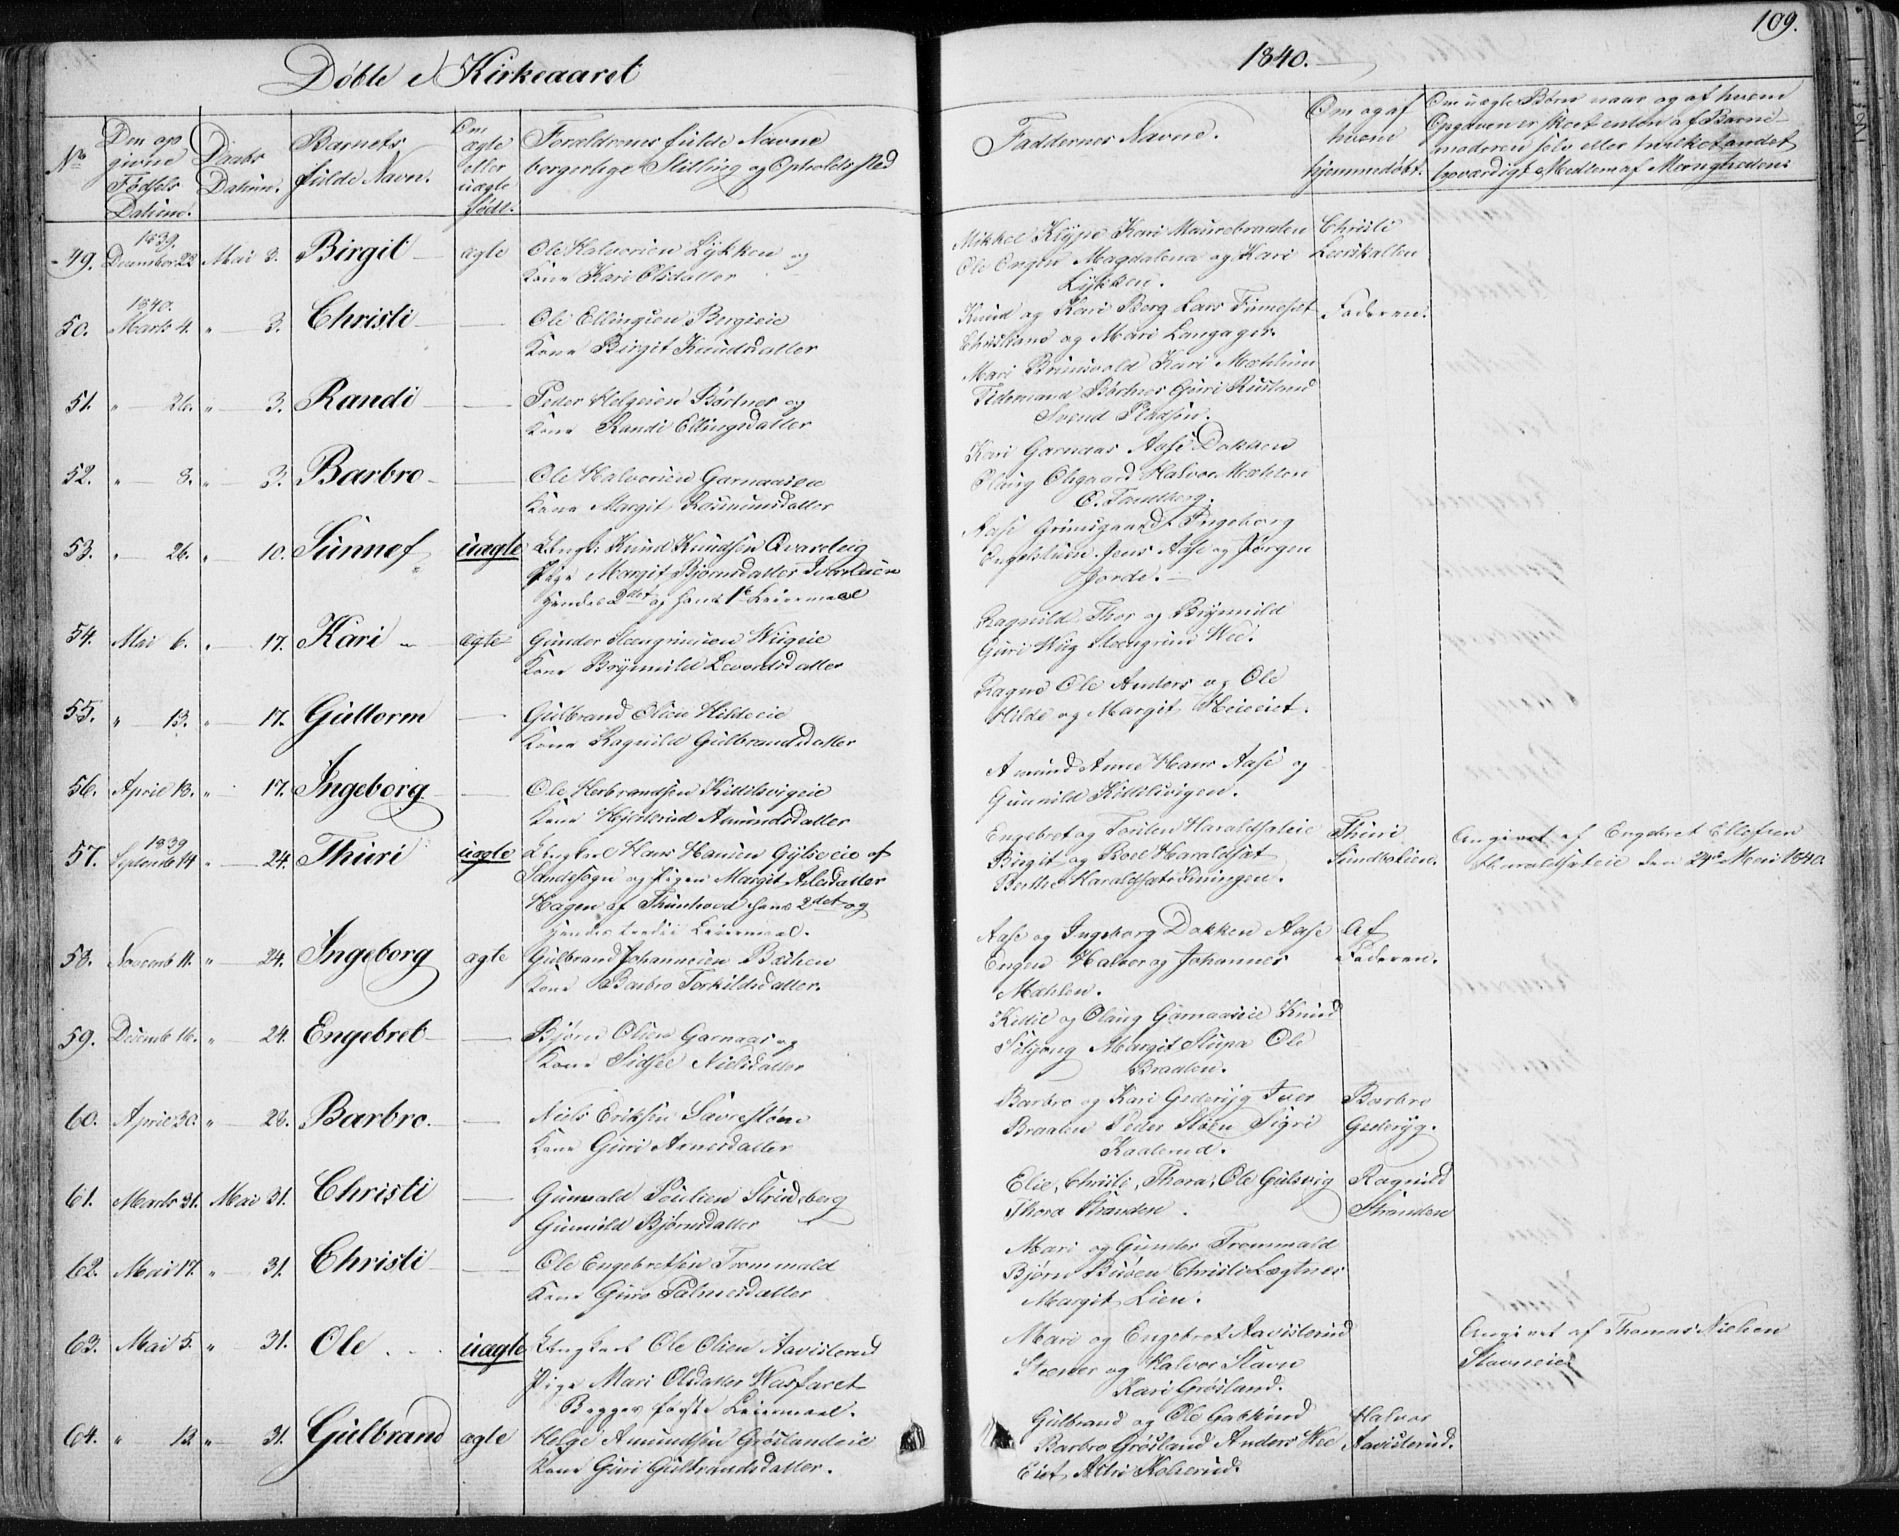 109.
Døbte i Kirkeaaret
1840.
No
Den op
givne
Fødsels
Datum.
Daabs
Datum.
Barnets
fulde Navn.
Om
ægte
eller
uægte
født.
Forældrenes fulde Navne
borgerlige Stilling og Opholdssted
Faddernes Navne.
Om og af
hvem
hjemmedøbt.
Om uægte Børn naar og af hvem
Opgaven er skeet enten af Barne
moderen selv eller hvilket andet
troværdigt Medlem af Menigheden.
1839.
49. December 22 Mai 3. Birgit ægte Ole Halvorsen Lykken og
Kone Kari Olsdatter
Mikkel Kløpe Kari Maurebraaten Christi
Ole Engen Magdalena og Kari
Lykken.
1840.
50. Marts 4. " 3. Christi — Ole Ellingsen Bergseie
Kone Birgit Knudsdatter
Knud og Kari Berg Lars Finneset Faderen.
Christiane og Mari Langager.
51. " 26. " 3. Randi — Peder Helgesen Børtnes og
Kone Randi Ellingsdatter
Mari Brunvold Kari Mæhlum
Tidemand Børtnes Guri Rusland
Svend Pladsen.
52. " 8. " 3. Barbro — Ole Halvorsen Garnaasen
Kone Margit Rasmusdatter
Kari Garnaas Aase Dokken
Olaug Olsgaard Halvor Mæhlen
O. Tandberg.
53. " 26. " 10. Sünnef uægte Ungk. Knud Knudsen Qvarveeig
Pige Margit Bjørnsdatter
Hendes 2det og hans 1te Leiermaal
Aase Grimsgaard Ingeborg
Jens Aase og Jørgen
Jorde.
54. Mai 6. " 17. Kari ægte Gunder Steengrimsen Wiigeie
Kone Brynnild Levordsdatter
Ragnild Thor og Brynnild
Guri Wiig Steengrim Wee.
55. " 13. " 17. Guttorm — Gulbrand Olsen Hildeeie
Kone Ragnild Gulbrandsdatter
Ragne Ole Anders og Ole
Hilde og Margit Heieeiet.
56. April 13. " 17. Ingeborg — Ole Herbrandsen Kittilsvigeie
Kone Hjerterud Amundsdatter
Amund Anne Hans Aase og
Gunnild Kittilsvigen.
1839
57. Septemb 14 " 24. Thuri uægte Ungkarl Hans Hansen Gylseeie af
Sandesogn og Pigen Margit Atlesdatter
Hagen af Thunhovd hans 2det og
hendes tredie Leiermaal.
Engebret og Torsten Haraldseteie Thuri
Birgit og Boel Haraldset
Berthe Haraldset
Angivet af Engebret Ellefsen
Haraldseteie den 24de Mai 1840.
58. Novemb 11. " 24. Ingeborg ægte Gulbrand Johannesen Bækken
Kone Barbro Torkildsdatter.
Aase og Ingeborg Dokken Aase Af
Engen Halvor og Johannes Faderen.
Mæhlen.
59. Decemb 16. " 24. Engebret — Bjørn Olsen Garnaas og
Kone Sidsel Nielsdatter
Kittil og Olaug Garnaaseie Knud
Margit Stupa Ole
Braaten.
60. April 30. " 28. Barbro. — Niels Eriksen Sevrestøen
Kone Guri Arnesdatter
Barbro og Kari Gederyg Iver Barbro
Braaten Peder Støen Sigri Gederyg.
Kaalerud.
61. Marts 31. Mai 31. Christi — Gunvald Poulsen Strindsberg
Gunnild Bjørnsdatter
Elie, Christi, Thora, Ole Gulsvig Ragnild
Thora Stranden. Stranden
62. Mai 17. " 31. Christi — Ole Engebretsen Trommald
Kone Guro Palmesdatter
Mari og Gunder Trommald
Bjørn Buöen Christi Lægtnes
Margit Lien.
63. Mai 5. " 31. Ole uægte Ungkarl Ole Olsen Aavesterud
Pige Mari Olsdatter Wasfaret
Begges første Leiermaal.
Mari og Engebret Aavesterud
Steener og Halvor Stavn
Kari Grøsland.
Angivet af Thomas Nielsen
Stavneeie
64. " 12. " 31. Gulbrand ægte Helge Amundsen Grøslandeie
Kone Guri Gulbrandsdatter.
Gulbrand og Ole Gabkind Halvor
Barbro Grøsland Anders Wee Aavesterud.
Eiet Atlri Kolserud.